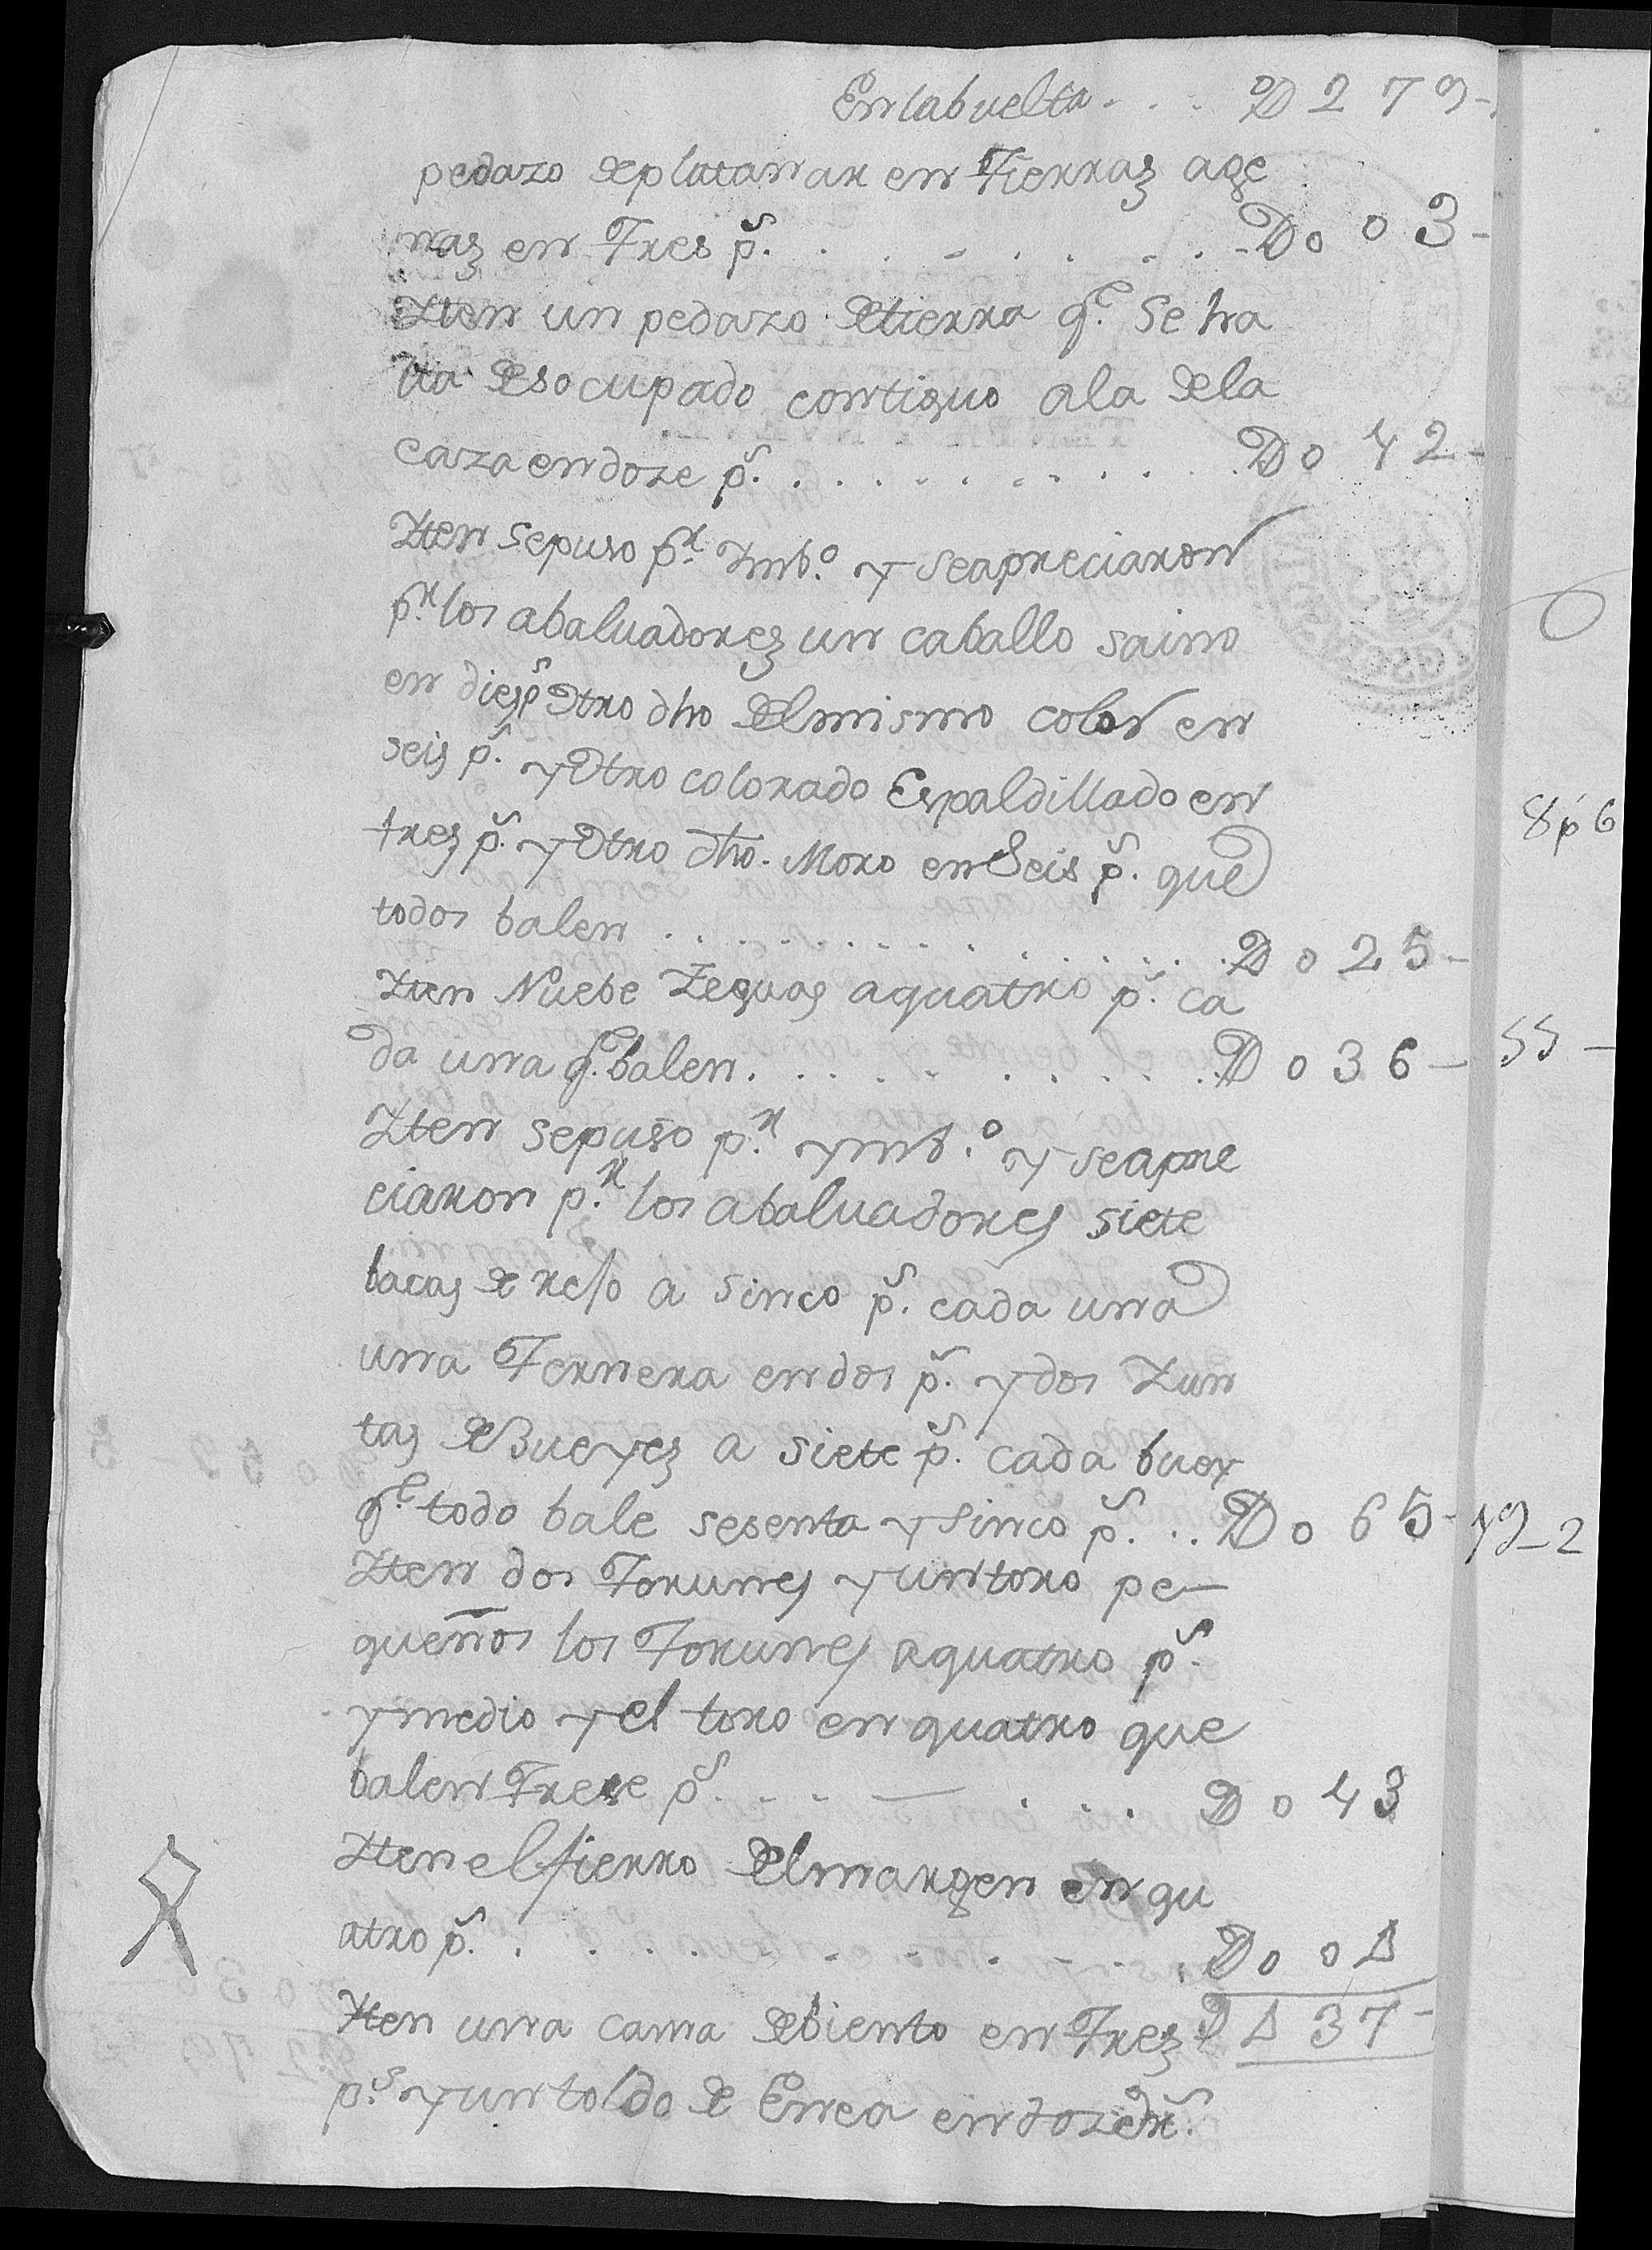 En la buelta . . . D 279-
pedazo de platanar en Tierras age
nas en Tres p.s . . . . . . . . D 003-
Yten un pedazo de tierra q.e se ha
lla desocupado contiguo a la de la
caza en doze p.s . . . . . . . . . . D 012-
Yten se puso p.r Ymb.o y se apreciaron
p.r los abaluadores un caballo saino
en dies p.s Otro dho del mismo color en
seis p.s y Otro colorado Espaldillado en
tres p.s y Otro dho. Moro en Seis p.s que
todos balen . . . . . . . . . . . . . D 025-
Yten Nuebe Yeguas a quatro p.s ca
da una q.e balen . . . . . . . . . . D 036-
Yten se puso p.r ymb.o y se apre
ciaron p.r los abaluadores siete
bacas de rejo a sinco p.s cada una
una Ternera en dos p.s y dos Yun
tas de Bueyes a siete p.s cada buey
q.e todo bale sesenta y sinco p.s . . D 065-
Yten dos Torunes y un toro pe-
queños los Torunes a quatro p.s
y medio y el toro en quatro que
balen Trese p.s . . . — . . . D 013
Yten el fierro del margen en qu
atro p.s . . . . . . . . . . . D 004
D 437-
Yten una cama de biento en Tres
p.s y un toldo de Enea en doze r.s
8p6
55-
19-2